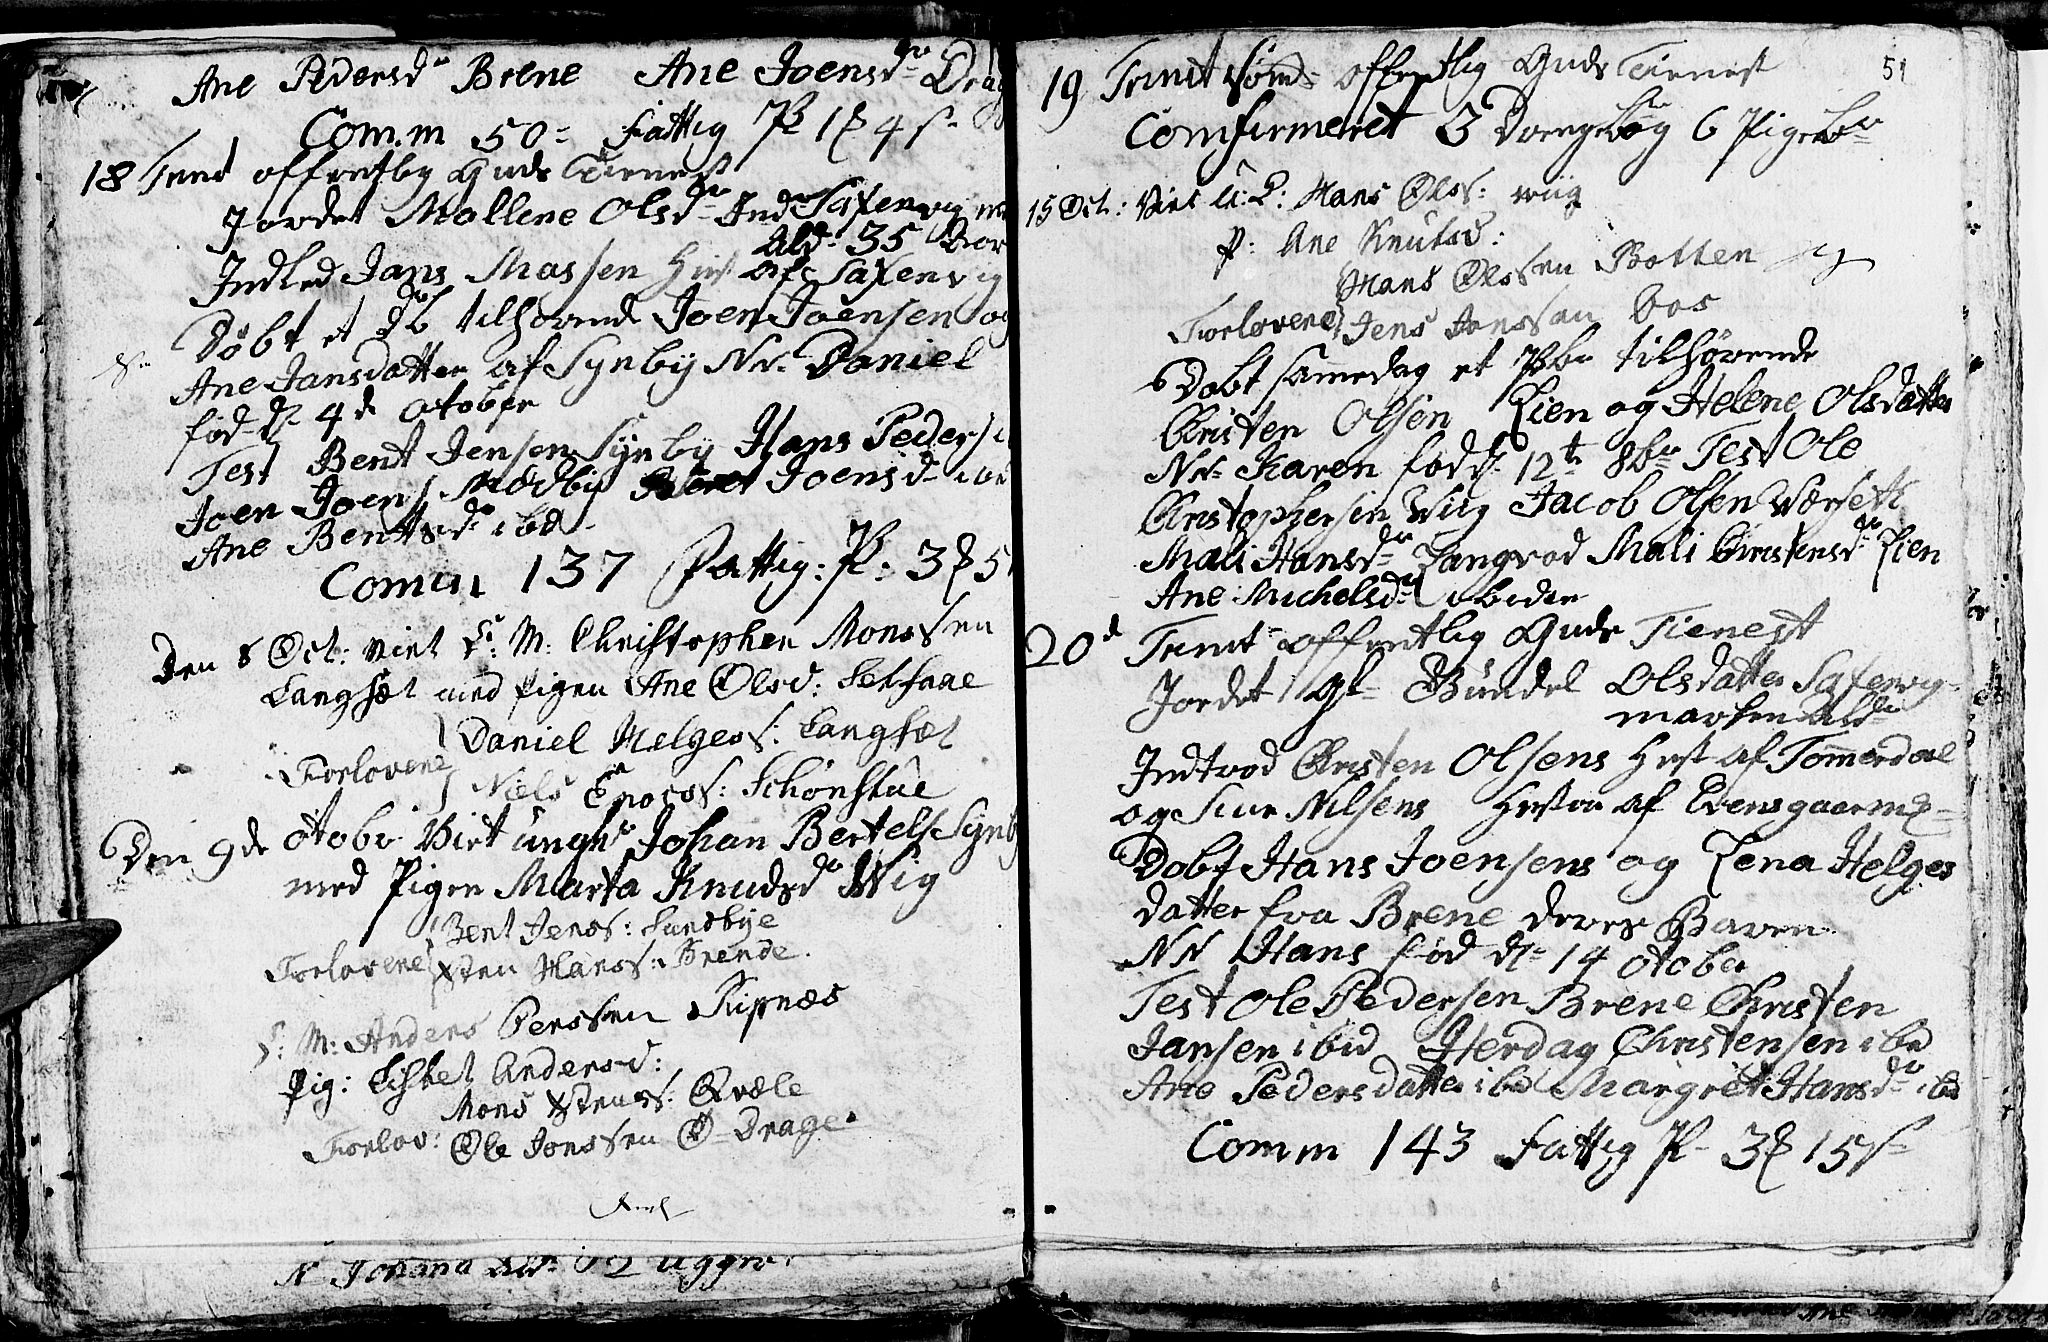 Ane Pedersdr Brene Ane Joensdr Drag
Com.m 50 = Fattig P 1 4 s
18 Trint offentlig Guds Tienest
Jordet Mallene Olsdr Ind Saxenvig
Ald: 35 Aar
Indled Jans Massen Hust af Saxenvig
Døbt et Db tilhörende Joen Joensen og
Ane Jansdatter af Synby Nn. Daniel
fød d 4de otober
Test Bent Jensen Synby Hans Peders
Joen Joens Nordbÿ Beret Joensdr ibd
Ane Bentsdr ibd
Comm 137 Fattig: P: 3 5
Den 8 Oct: viet S: M: Christopher Monssen
Langsæt med Pigen Ane Olsd: Setsaae
Daniel Helgess: Langsæt
Forlovene
Niels Enocss: Schönstue
Den 9de otobr Viet ungk Johan Bertels Synb
med Pigen Marta Knudsdr Wig
Bent Jenss: Sundbye
Forlovene
Xsten Hanss: Brende.
S: M: Anders Perssen Kipnæs
Pig: Lisbet Andersd:
Mons Xstens: Qvæle
Forlov: Ole Jonssen Ø-Drage.
N Johana Ald: 12 Ugger
51
19 Trint Sönd offentlig Guds Tienest
Comfirmeret 3 Drenge og 6 Pige
15 Oct: Viet U: K: Hans Olss: wiig
P: Ane Knutsd:
Hans Olssen Botten
Forlovene Jens Jenssen Bos
Døbt samedag et Pbr tilhørende
Christen Olsen Lien og Helene Olsdatter
Nn: Karen fød d: 12te 8br Test Ole
Christophersen Viig Jacob Olsen Værseth
Mali Hansdr Langrod Mali Christensdr Lien
Ane Michelsdr ibiden
20d Trint offentlig Guds Tienest
Jordet Gl Gündel Olsdatter Saxenvig-
marken Aldr
Indtrod Christen Olsens Hust af Tommerdal
og Siur Nilsens Hustru af Evensgaarm
Døbt Hans Joensens og Lena Helges
datter fra Brene deres Baren
NN Hans fød d 14 otober
Test Ole Pedersen Brene Christen
Jansen ibid Herdag Christensen ibd
Ane Pedersdatter ibd Margret Hansdr ibd
Comm 143 Fattig P 3 15 s